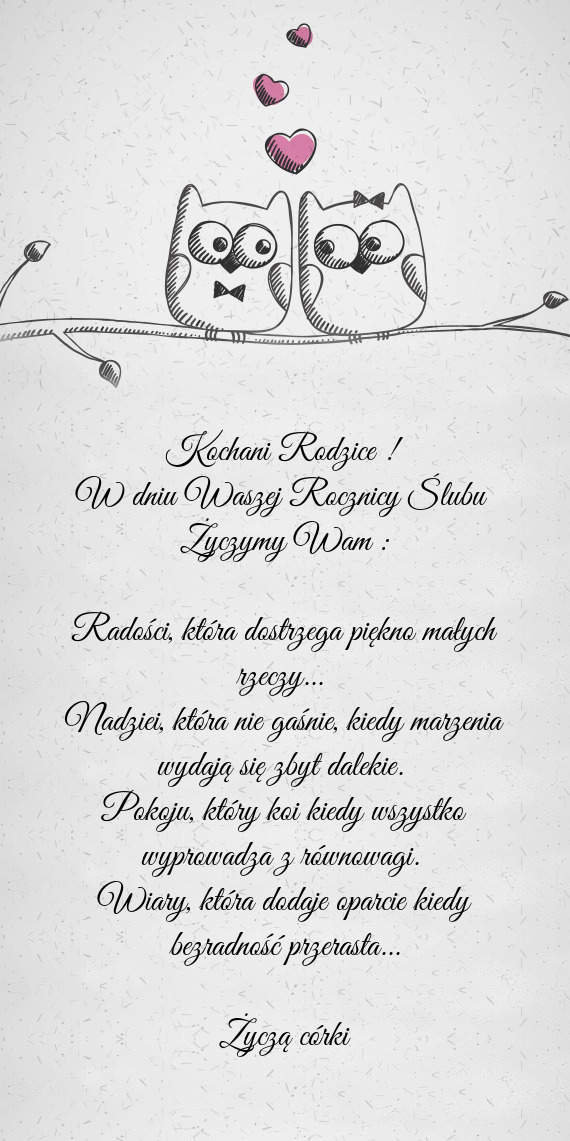 Kochani Rodzice !
W dniu Waszej Rocznicy Ślubu
Życzymy Wam :
Radości, która dostrzega piękno małych
rzeczy...
Nadziei, która nie gaśnie, kiedy marzenia
wydają się zbyt dalekie.
Pokoju, który koi kiedy wszystko
wyprowadza z równowagi.
Wiary, która dodaje oparcie kiedy
bezradność przerasta...
Życzą córki